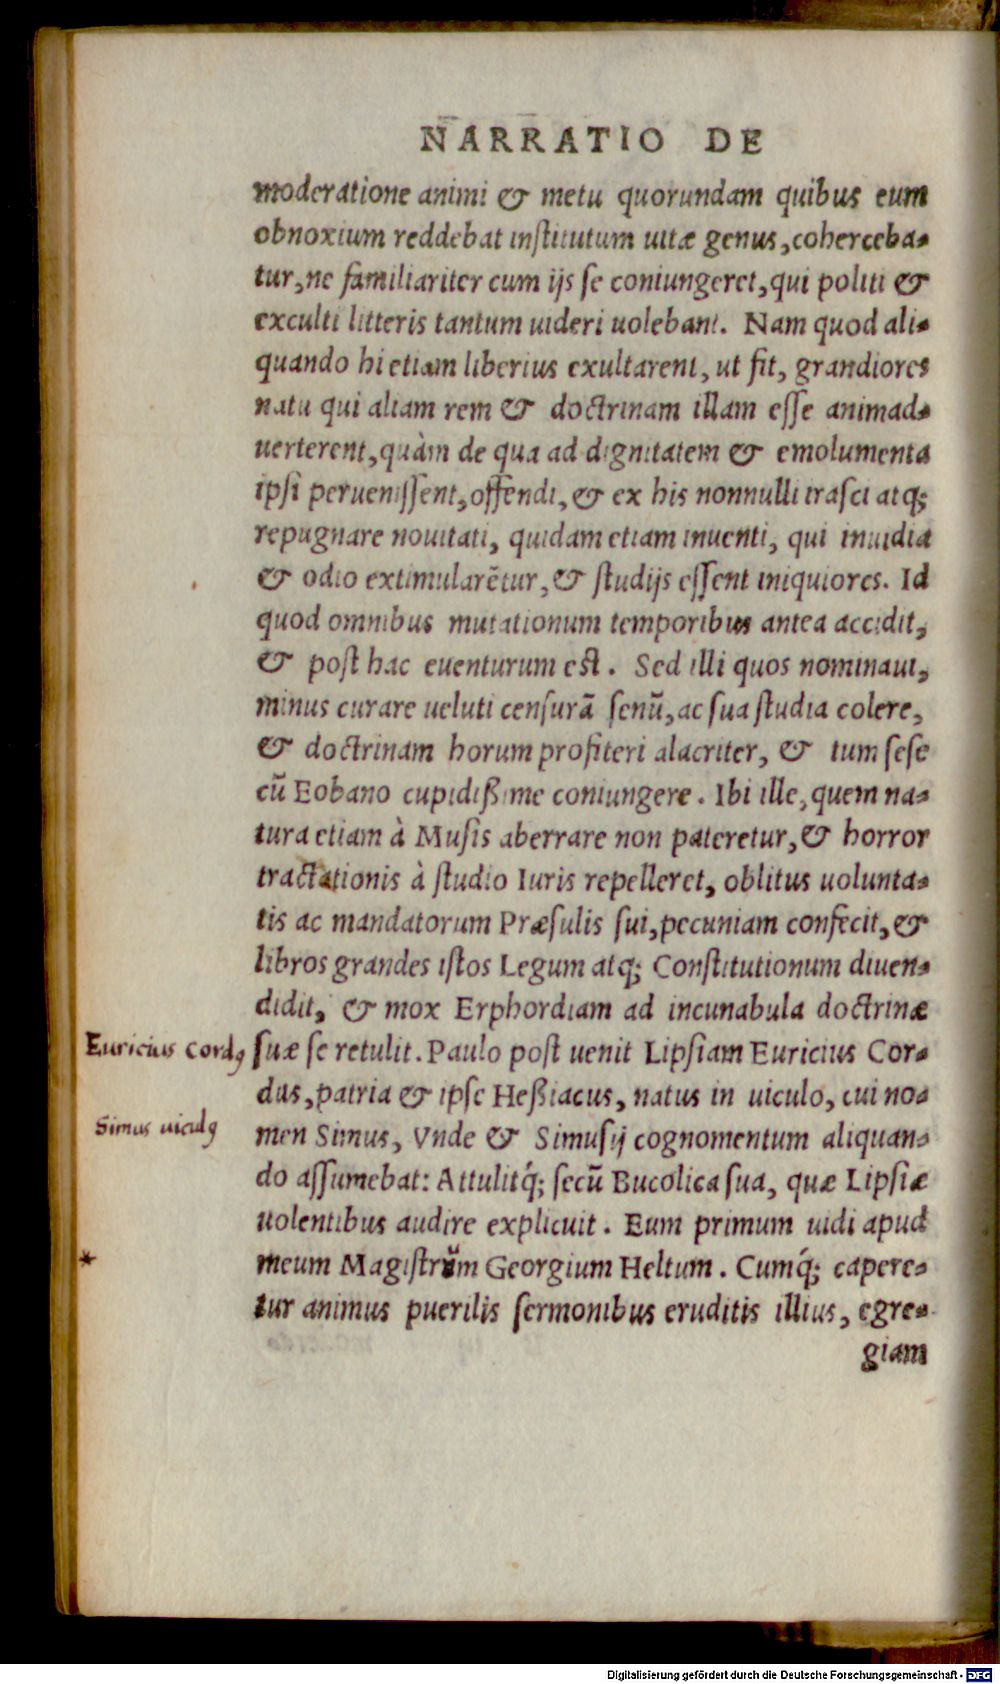 NARRATIO DE
moderatione animi & metu quorundam quibus eum
obnoxium reddebat institutum uitæ genus, coherceba-
tur, ne familiariter cum ijs se coniungeret, qui politi &
exculti litteris tantum uideri uolebant. Nam quod ali-
quando hi etiam liberius exultarent, ut fit, grandiores
natu qui aliam rem & doctrinam illam esse animad-
uerterent, quàm de qua ad dignitatem & emolumenta
ipsi peruenissent, offendi, & ex his nonnulli irasci atq;
repugnare nouitati, quidam etiam inuenti, qui inuidia
& odio extimularẽtur, & studijs essent iniquiores. Id
quod omnibus mutationum temporibus antea accidit,
& post hac euenturum est. Sed illi quos nominaui,
minus curare ueluti censurã senũ, ac sua studia colere,
& doctrinam horum profiteri alacriter, & tum sese
cũ Eobano cupidißime coniungere. Ibi ille, quem na-
tura etiam à Musis aberrare non pateretur, & horror
tractationis à studio Iuris repelleret, oblitus uolunta-
tis ac mandatorum Præsulis sui, pecuniam confecit, &
libros grandes istos Legum atq; Constitutionum diuen-
didit, & mox Erphordiam ad incunabula doctrinæ
Euricius Cordꝯ suæ se retulit. Paulo post uenit Lipsiam Euricius Cor-
dus, patria & ipse Heßiacus, natus in uiculo, cui no-
Simus uiculꝯ
men Simus, Vnde & Simusij cognomentum aliquan-
do assumebat: Attulitq́; secũ Bucolica sua, quæ Lipsiæ
uolentibus audire explicuit. Eum primum uidi apud
* meum Magistrũm Georgium Heltum. Cumq́; capere-
tur animus puerilis sermonibus eruditis illius, egre-
giam
Digitalisierung gefördert durch die Deutsche Forschungsgemeinschaft - DFG